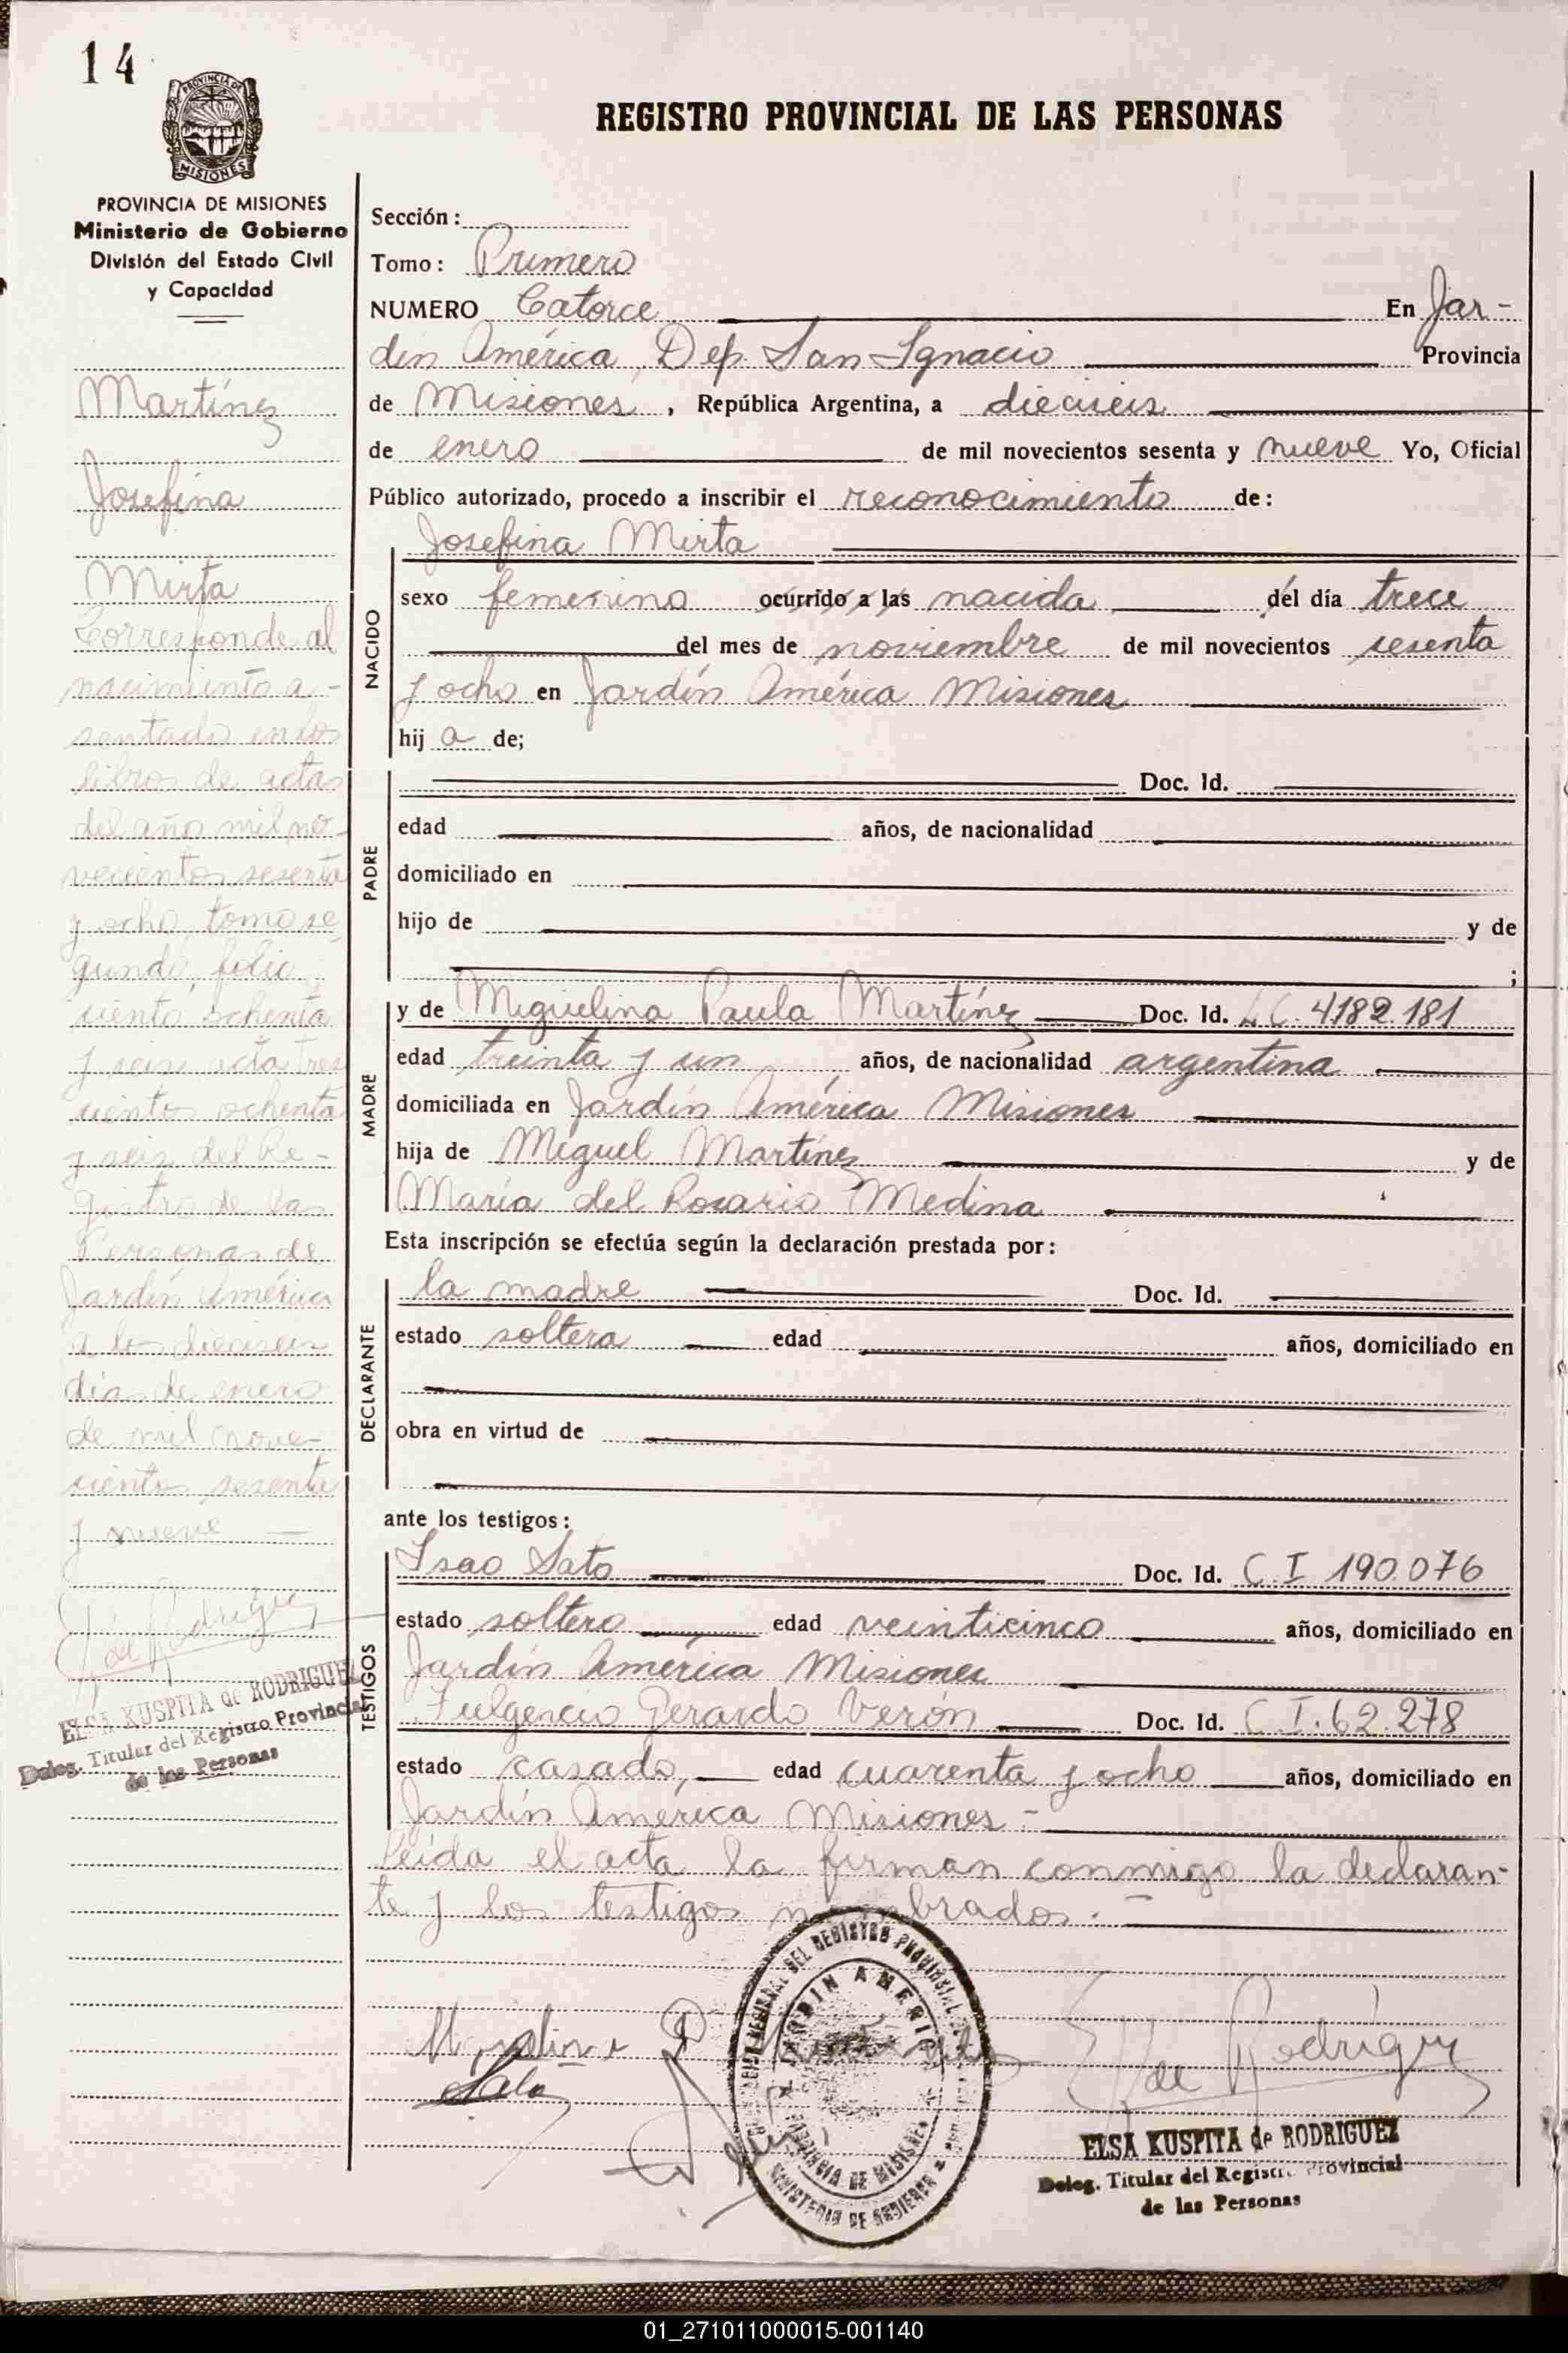 14
PROVINCIA DE
MISIONES
REGISTRO PROVINCIAL DE LAS PERSONAS
PROVINCIA DE MISIONES
Ministerio de Gobierno
División del Estado Civil
y Capacidad
Martínez
Josefina
Mirta
Corresponde al
nacimiento a-
sentado en los
libros de actas
del año mil no-
vecientos sesenta
y ocho, tomo se
gundo, folio
ciento ochenta
y seis acta tres
cientos ochenta
y seis del Re-
gistro de las
Personas de
Jardín América
a los dieciseis
días de enero
de mil nove-
cientos sesenta
y nueve
E de Rodríguez
ELSA KUSPITA de RODRIGUEZ
Deleg. Titular del Registro Provincial
de las Personas
Sección:
Tomo: Primero
NUMERO Catorce En Jar-
dín América, Dep. San Ignacio Provincia
de Misiones, República Argentina, a dieciseis
de enero de mil novecientos sesenta y nueve Yo, Oficial
Público autorizado, procedo a inscribir el reconocimiento de:
Josefina Mirta
NACIDO
sexo femenino ocurrido a las nacida del día trece
del mes de noviembre de mil novecientos sesenta
y ocho en Jardín América Misiones
hij a de;
PADRE
Doc. Id.
edad años, de nacionalidad
domiciliado en
hijo de y de
;
MADRE
y de Miguelina Paula Martínez Doc. Id. L.C. 4182.181
edad treinta y un años, de nacionalidad argentina
domiciliada en Jardín América Misiones
hija de Miguel Martínez y de
María del Rosario Medina
Esta inscripción se efectúa según la declaración prestada por:
DECLARANTE
la madre Doc. Id.
estado soltera edad años, domiciliado en
obra en virtud de
ante los testigos:
TESTIGOS
Isao Sato Doc. Id. C.I 190.076
estado soltero edad veinticinco años, domiciliado en
Jardín América Misiones
Fulgencio Gerardo Verón Doc. Id. C.I. 62.278
estado casado, edad cuarenta y ocho años, domiciliado en
Jardín América Misiones.-
Leída el acta la firman conmigo la declaran-
te y los testigos nombrados.-
JARDIN AMERICA
PROVINCIA DE MISIONES
MINISTERIO DE GOBIERNO
Sato
E de Rodríguez
ELSA KUSPITA de RODRIGUEZ
Deleg. Titular del Registro Provincial
de las Personas
01_271011000015-001140